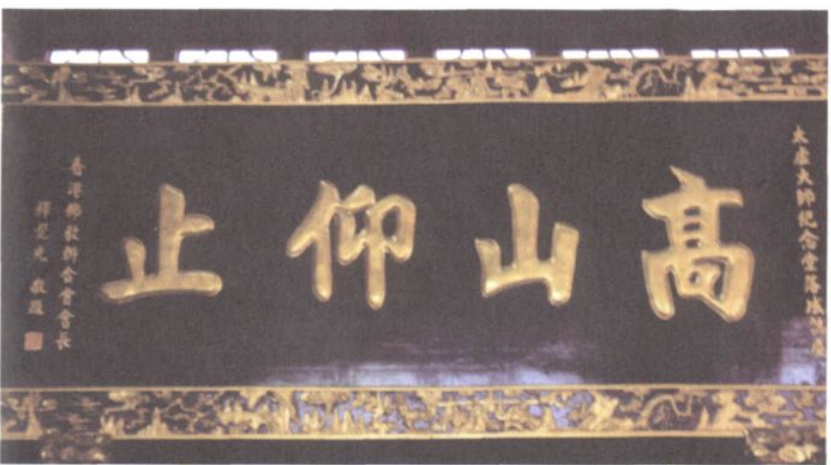 太虛大師纪念堂落成誌慶
高山仰止
香港佛教聯合會會長
釋覺光 敬題